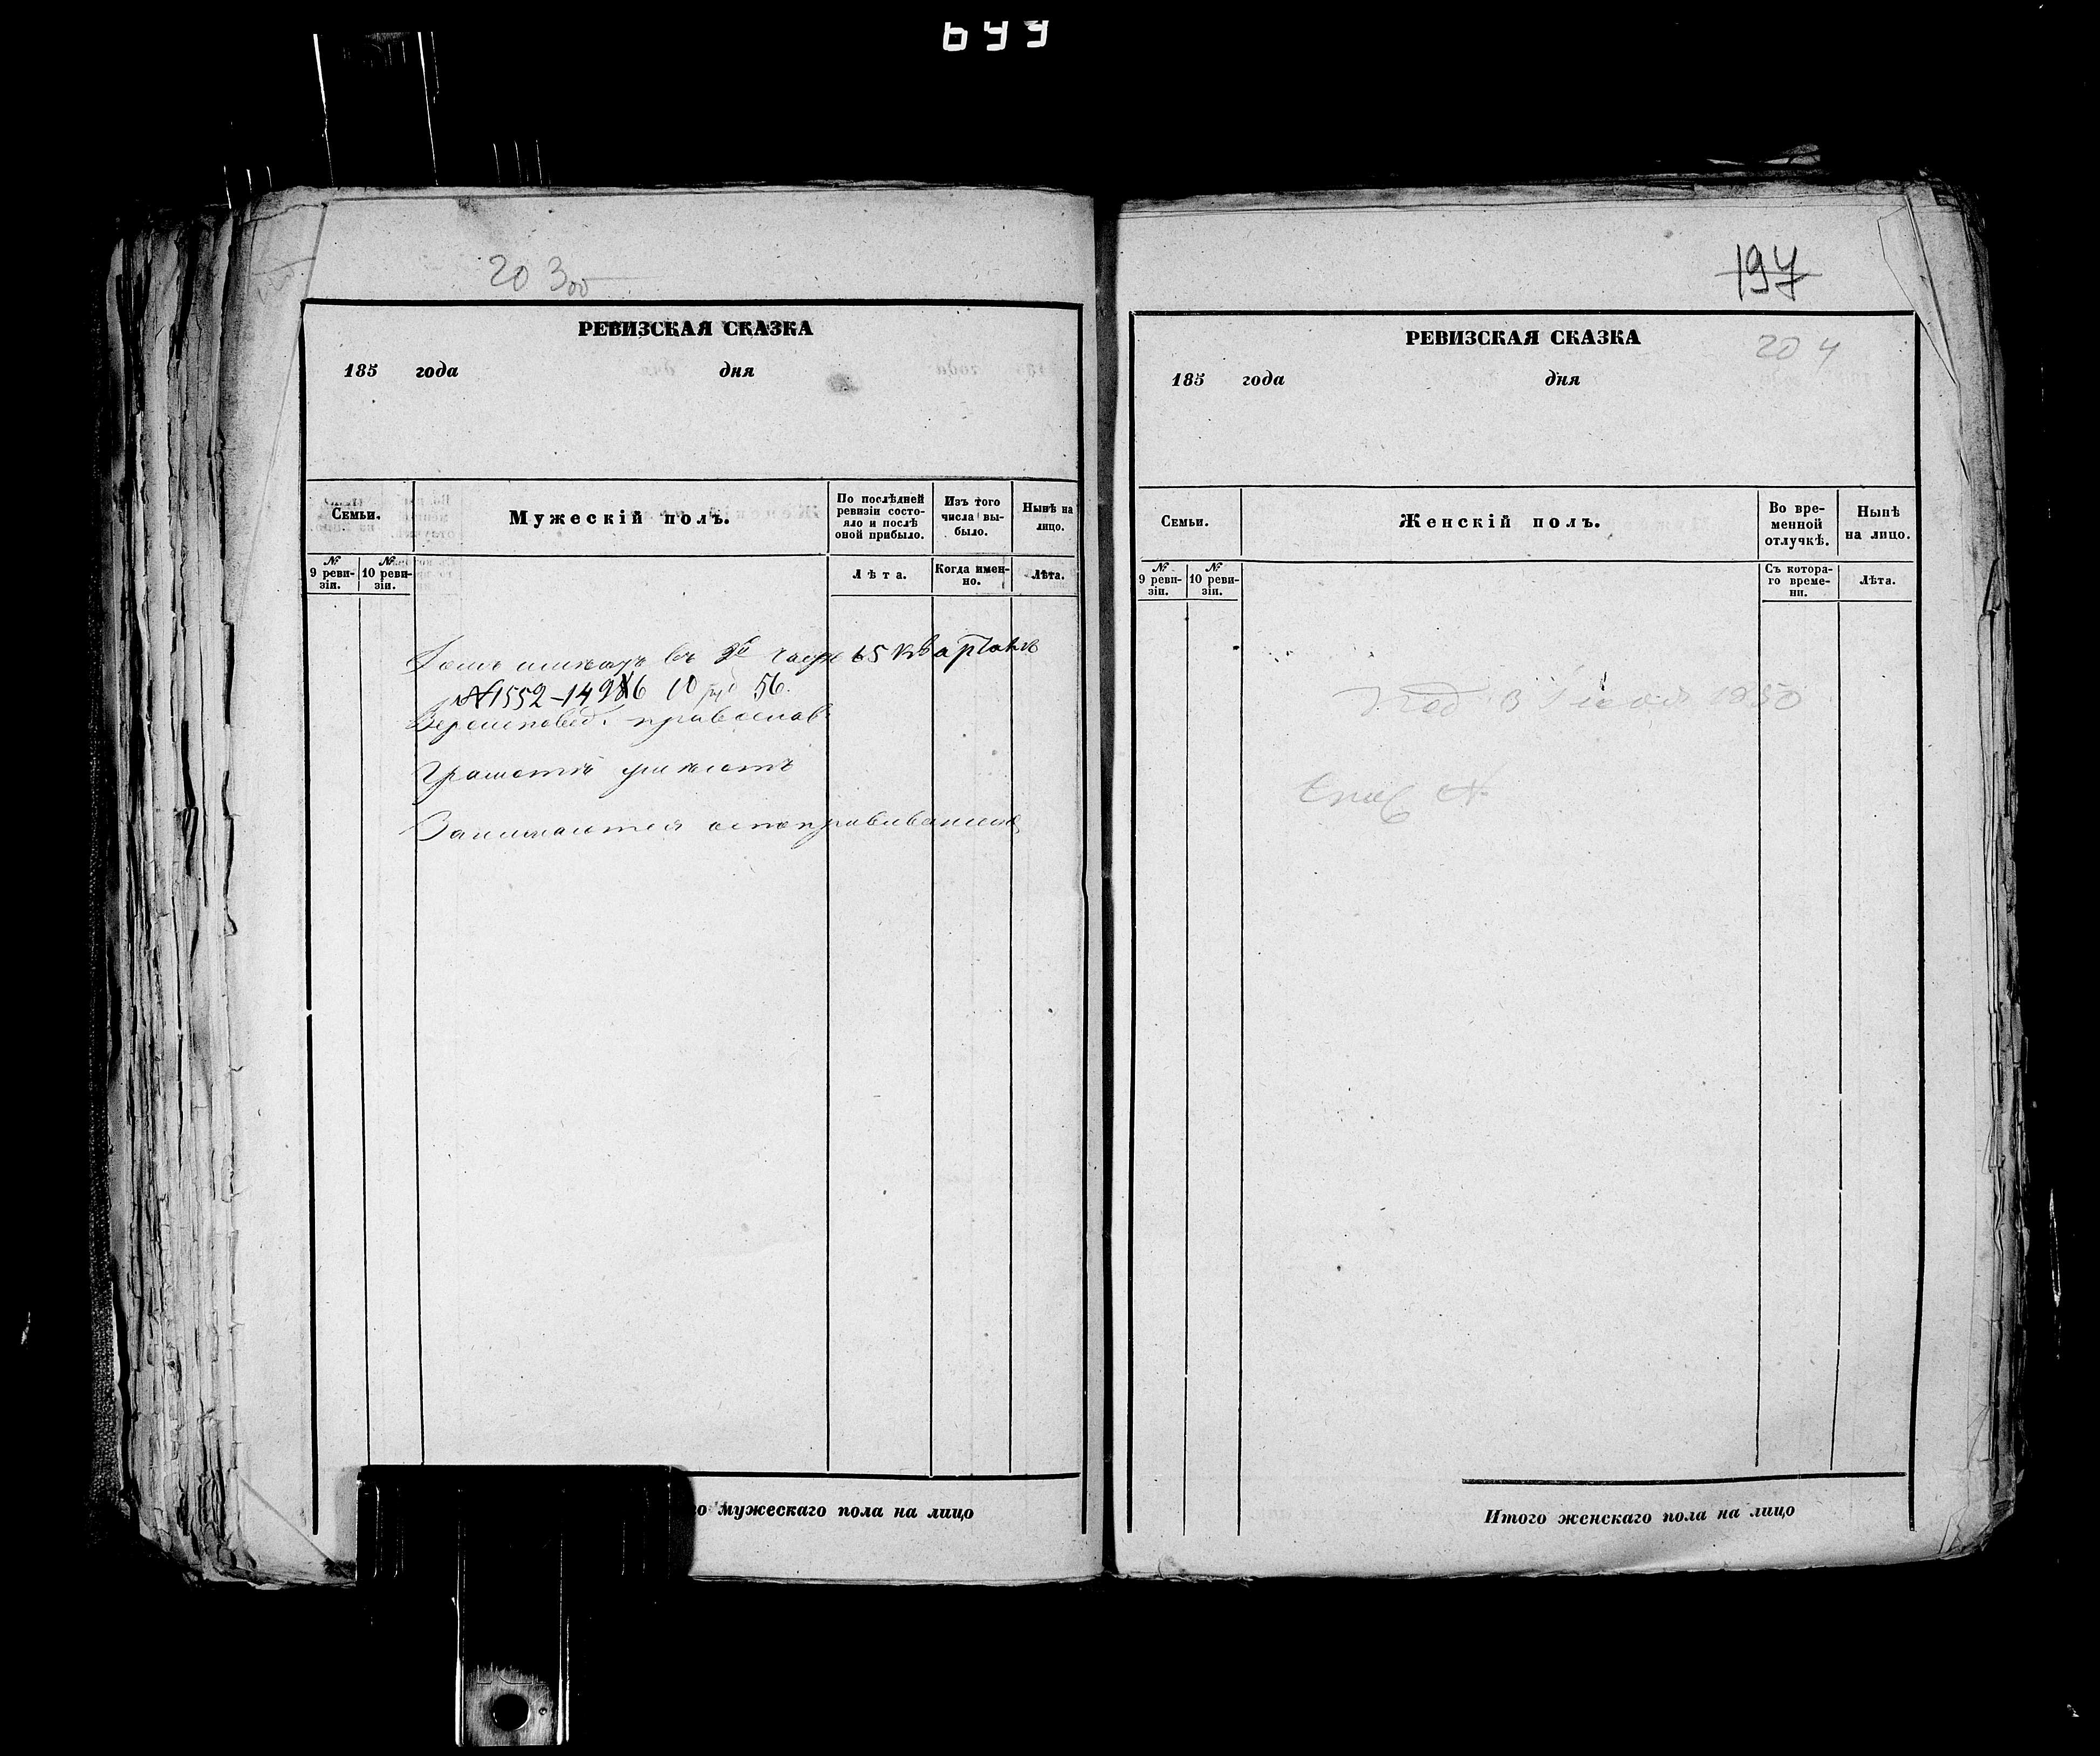 699
20 300
РЕВИЗСКАЯ СКАЗКА
185 года дня
Семьи.
Мужескій полъ.
По послѣдней ревизіи состояло и послѣ оной прибыло.
Изъ того числа выбыло.
Нынѣ на лицо.
№ 9 ревизіи.
№ 10 ревизіи.
Лѣта.
Когда именно.
Лѣта.
Домъ имѣютъ въ 3й части 5 квартала
№1552-149 6 10 56.
Вероисповед. православ.
Грамотѣ умѣютъ
Занимаются
го мужескаго пола на лицо
197
РЕВИЗСКАЯ СКАЗКА
204
185 года дня
Семьи.
Женскій полъ.
Во временной отлучкѣ.
Нынѣ на лицо.
№ 9 ревизіи.
№ 10 ревизіи.
Съ котораго времени.
Лѣта.
Под. 3 Июля 1850
№
Итого женскаго пола на лицо